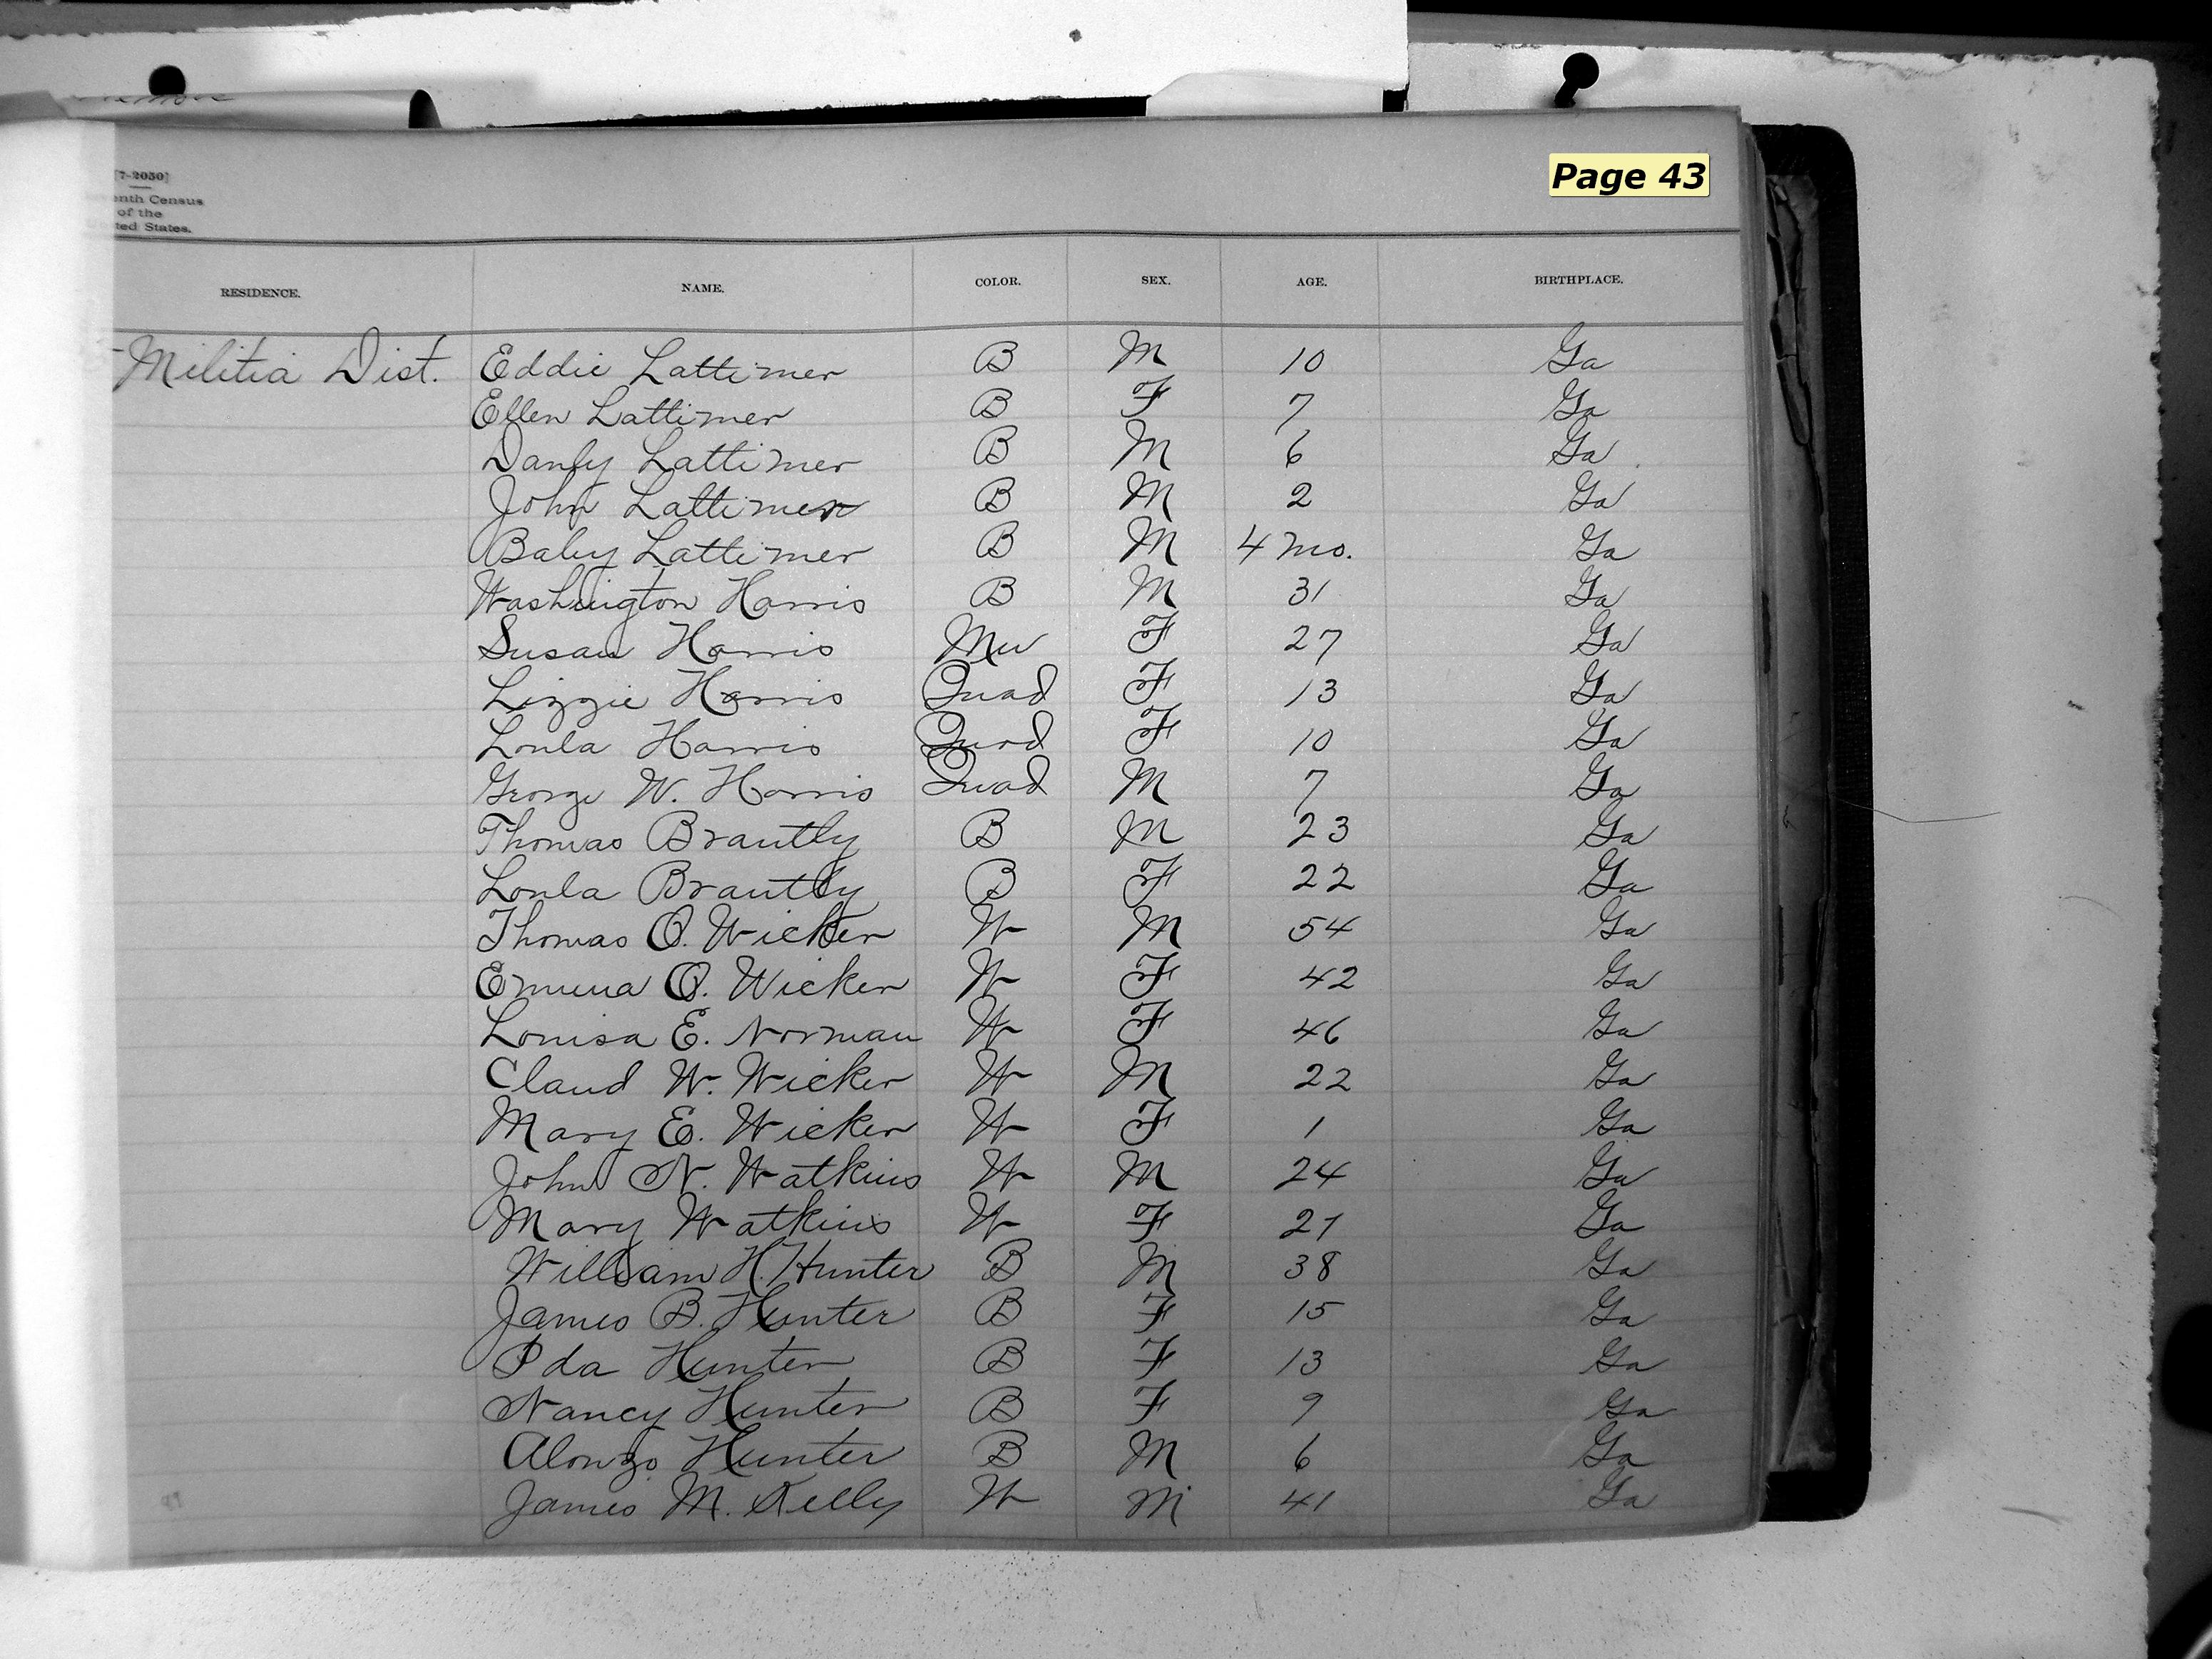 Page 43
[7-2050]
enth Census
of the
ted States.
RESIDENCE. NAME. COLOR. SEX. AGE. BIRTHPLACE.
Militia Dist. Eddie Lattimer B M 10 Ga
Ellen Lattimer B F 7 Ga
Danly Lattimer B M 6 Ga
John Lattimer B M 2 Ga
Baby Lattimer B M 4 mo. Ga
Washington Harris B M 31 Ga
Susan Harris Mu F 27 Ga
Lizzie Harris Quad F 13 Ga
Loula Harris Quad F 10 Ga
George W. Harris Quad M 7 Ga
Thomas Brantly B M 23 Ga
Loula Brantly B F 22 Ga
Thomas O. Wicker W M 54 Ga
Emma O. Wicker W F 42 Ga
Louisa E. Norman W F 46 Ga
Claud W. Wicker W M 22 Ga
Mary E. Wicker W F 1 Ga
John N. Watkins W M 24 Ga
Mary Watkins W F 21 Ga
William H. Hunter B M 38 Ga
James B. Hunter B F 15 Ga
Ida Hunter B F 13 Ga
Nancy Hunter B F 9 Ga
Alonzo Hunter B M 6 Ga
James M. Kelly W M 41 Ga